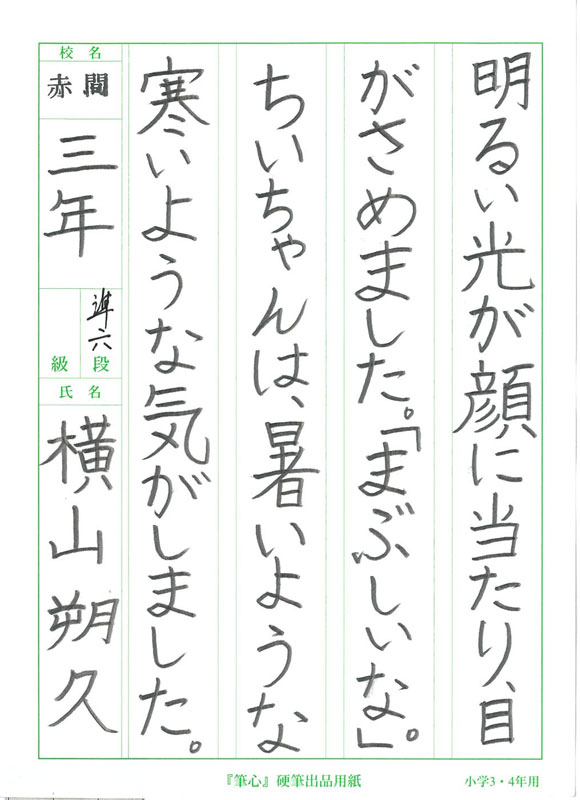 明るい光が顔に当たり、目
がさめました。「まぶしいな」。
ちいちゃんは、暑いような
寒いような気がしました。
校名
赤間
三年
準六
級段
氏名
横山朔久
『筆心』硬筆出品用紙
小学3・4年用